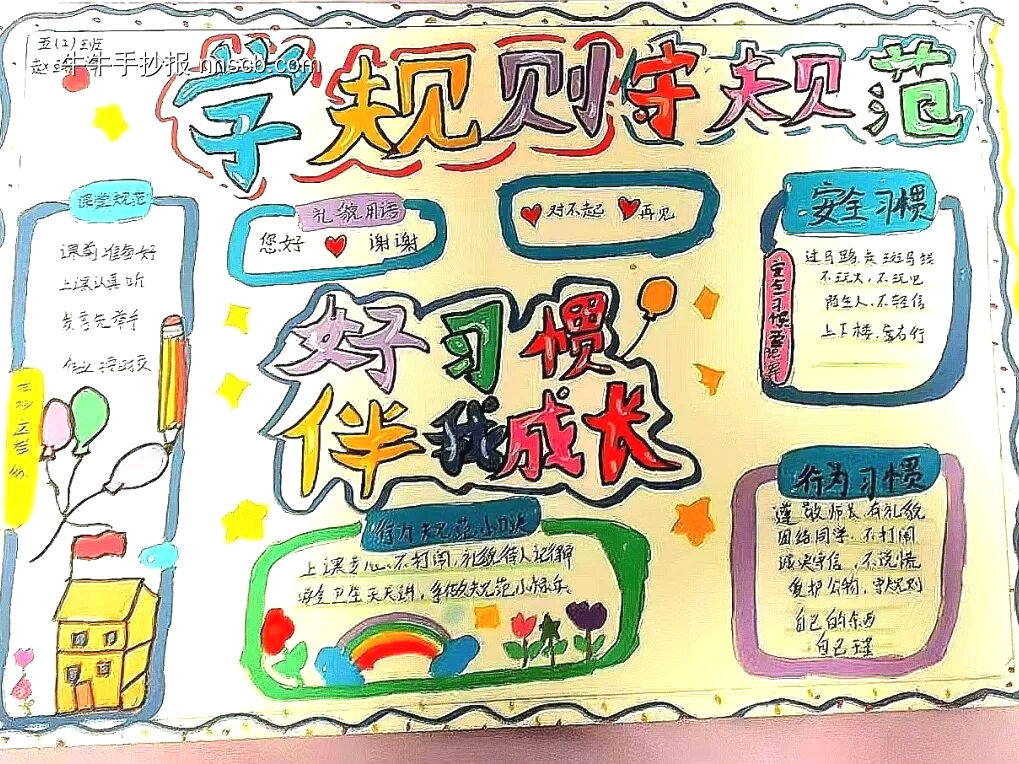 五(2)班
赵
牛牛手抄报 nnscb.com
学规则守规范
课堂规范
课前准备好
上课认真听
发言先举手
作业按时交
礼貌用语
您好 谢谢
对不起 再见
安全习惯
过马路,走斑马线
不玩火,不玩电
陌生人,不轻信
上下楼,靠右行
好习惯
伴我成长
行为规范小口诀
上课专心不打闹,礼貌待人记得牢
安全卫生天天讲,争做规范小标兵。
行为习惯
遵敬师长有礼貌
团结同学,不打闹
诚实守信,不说谎
爱护公物,守规则
自己的东西
自己理